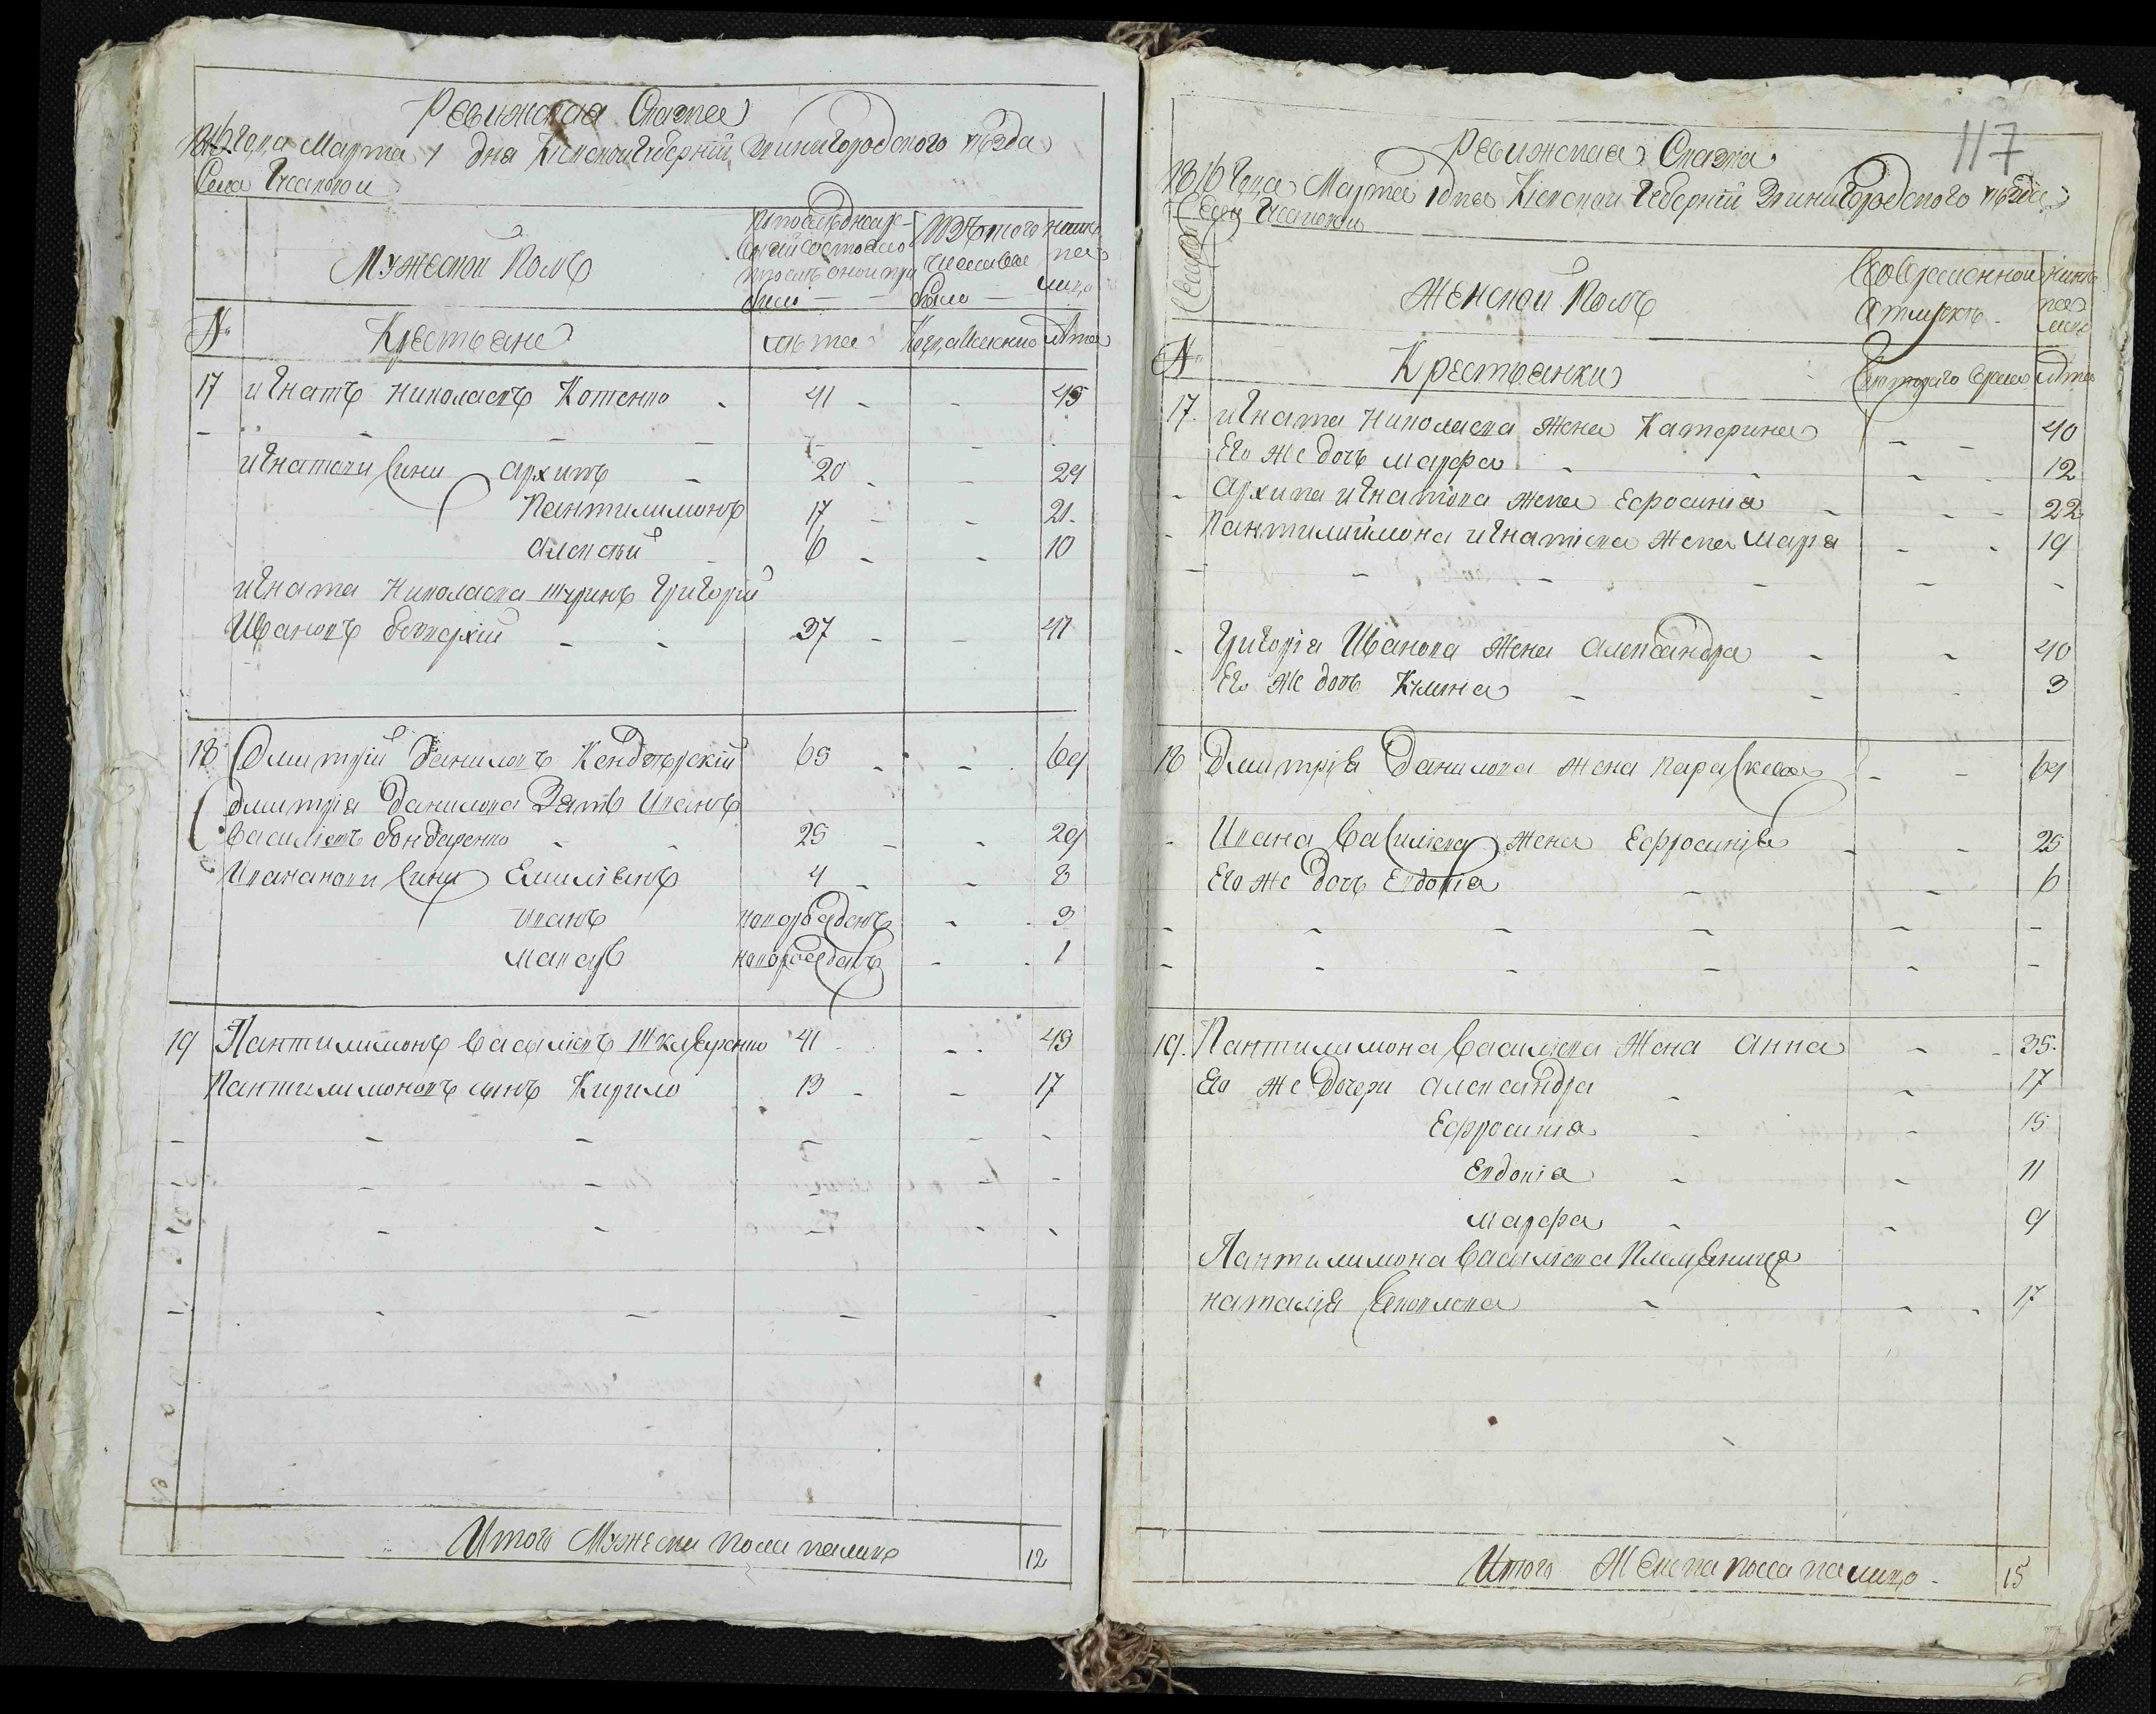 Ревижская Сказка
1816 года Марта 1 дня Кіевской Губерніи Звинигородского уѣзда
Села Чесновки
Мужеской Полъ
По последней ревизіи состояло и после оной прибыло
Изъ того числа выбыло
Ныне на лицо
№
Крестьяне
Лѣта
Когда именно
Лѣта
17 Игнатъ Николаевъ Котенко - 41 - - 45
Игнатови Сини Архипъ - 20 - - 24
Пантилимонъ 17 - - 21
Алексѣй 6 - - 10
Игната Николаева Шуринъ Григорій
Ивановъ - - 37 - - 41
18 Дмитрій Даниловъ 65 - - 69
Дмитрія Данилова Зять Иванъ
Василіевъ Бондаренко - - 25 - - 29
Ивановови Сини Емиліянъ 4 - - 8
Иванъ новорожденъ - - 3
Макаръ новорожденъ - - 1
19 Пантилимонъ Василіевъ Шкляренко 41 - - 45
Пантилимоновъ синъ Кирило 13 - - 17
Итого Мужеска пола налицо 12
117
Ревижская Сказка
1816 года Марта 1 дня Кіевской Губерніи Звинигородского уѣзда
Села Чесновки
Женской Полъ
Во временной отлучке
Ныне на лицо
№
Крестьянки
Съ которого время
Лѣта
17. Игната Николаева жена Катерина - - 40
Его же дочь Марфа - - 12
- Архипа Игнатова жена Ефросинія - - 22
- Пантилиймона Игнатіева жена Марія - - 19
- Григорія Иванова жена Александра - - 40
Его же дочь Кулина - - 3
18 Дмитрія Данилова жена Параскева - - 64
- Ивана Василіева жена Ефросинія - - 25
Его же дочь Евдокія - - 6
19. Пантилимона Василіева жена Анна - - 35
Его же дочери Александра - - 17
Ефросинія - - 15
Евдокія - - 11
Марфа - - 9
Пантилимона Василіева Племяница
Наталія - - 17
Итого Женска пола налицо - 15